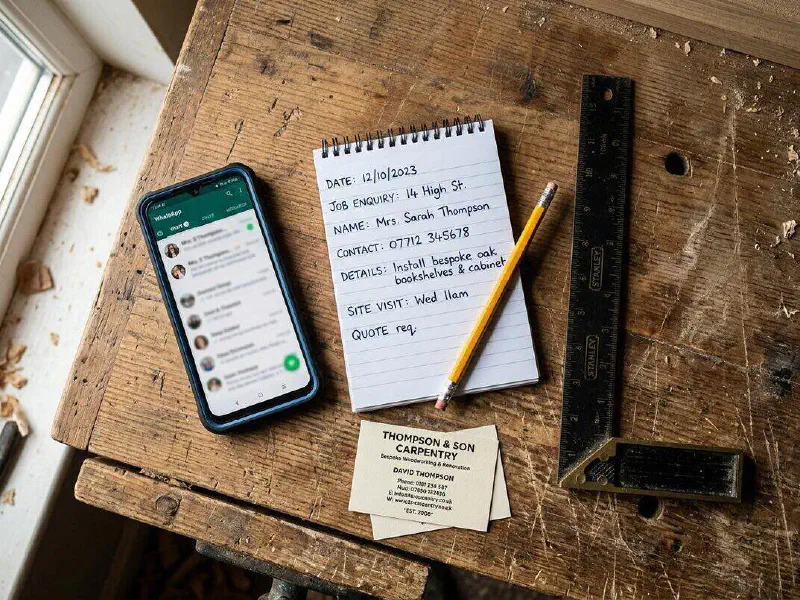 WhatsApp
DATE: 12/10/2023
JOB ENQUIRY: 14 High St.
NAME: Mrs. Sarah Thompson
CONTACT: 07712 345678
DETAILS: Install bespoke oak
bookshelves & cabinet
SITE VISIT: Wed 11am
QUOTE req.
THOMPSON & SON
CARPENTRY
Bespoke Woodworking & Renovation
DAVID THOMPSON
Phone:
"EST. 2006"
STANLEY
STANLEY